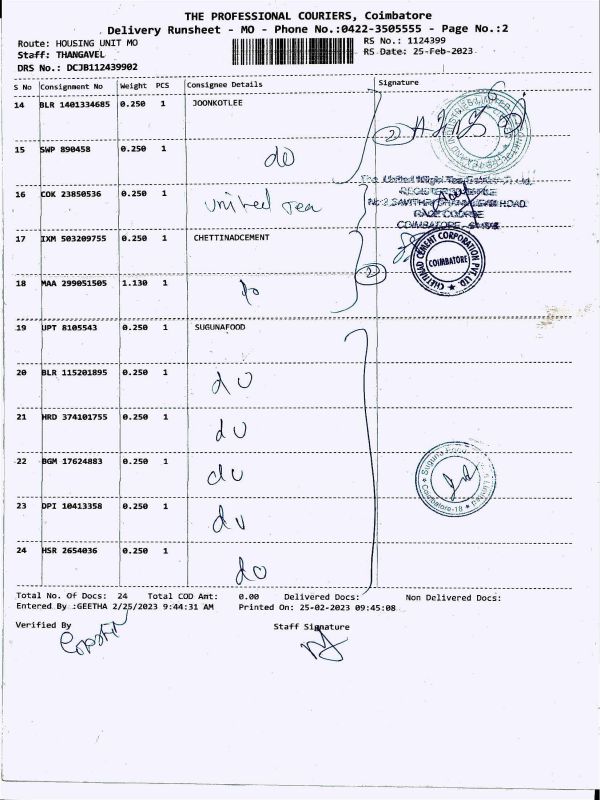 THE PROFESSIONAL COURIERS, Coimbatore
Delivery Runsheet - MO - Phone No.:0422-3505555 - Page No.:2
Route: HOUSING UNIT MO
RS No.: 1124399
Staff: THANGAVEL
RS Date: 25-Feb-2023
DRS No.: DCJB112439902
S No Consignment No Weight PCS Consignee Details Signature
14 BLR 1401334685 0.250 1 JOONKOTLEE
2
15 SWP 890458 0.250 1 do
16 COK 23850536 0.250 1 United Tea
REGISTERED OFFICE
RACE COURSE
COIMBATORE
17 IXM 503209755 0.250 1 CHETTINADCEMENT
CHETTINAD CEMENT CORPORATION PVT. LTD.
COIMBATORE
18 MAA 299051505 1.130 1 do
2
19 UPT 8105543 0.250 1 SUGUNAFOOD
20 BLR 115201895 0.250 1 do
21 HRD 374101755 0.250 1 do
22 BGM 17624883 0.250 1 do
Suguna Foods
Coimbatore-18
23 DPI 10413358 0.250 1 do
24 HSR 2654036 0.250 1 do
Total No. Of Docs: 24 Total COD Amt: 0.00 Delivered Docs: Non Delivered Docs:
Entered By :GEETHA 2/25/2023 9:44:31 AM Printed On: 25-02-2023 09:45:08
Verified By
Staff Signature